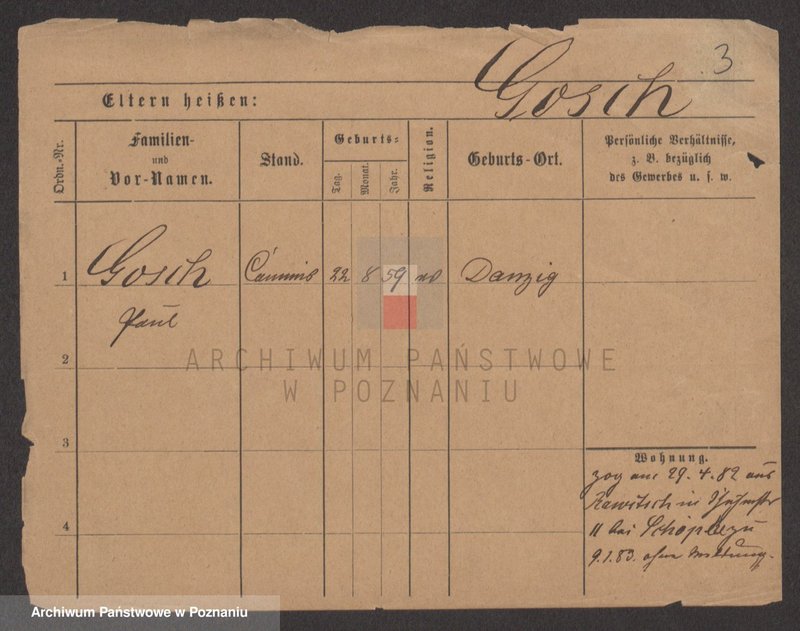 3
Gosch
Eltern heißen:
Ordn.-Nr.
Familien-
und
Vor-Namen.
Stand.
Geburts-
Tag.
Monat.
Jahr.
Religion.
Geburts-Ort.
Persönliche Verhältnisse,
z. B. bezüglich
des Gewerbes u. s. w.
1
Gosch
Paul
Commis
22
8
59
Danzig
2
ARCHIWUM PAŃSTWOWE
W POZNANIU
3
4
Wohnung.
zog am 29.4.82 aus
Rawitsch in
11 bei
9.1.83. ohne Meldung.
Archiwum Państwowe w Poznaniu